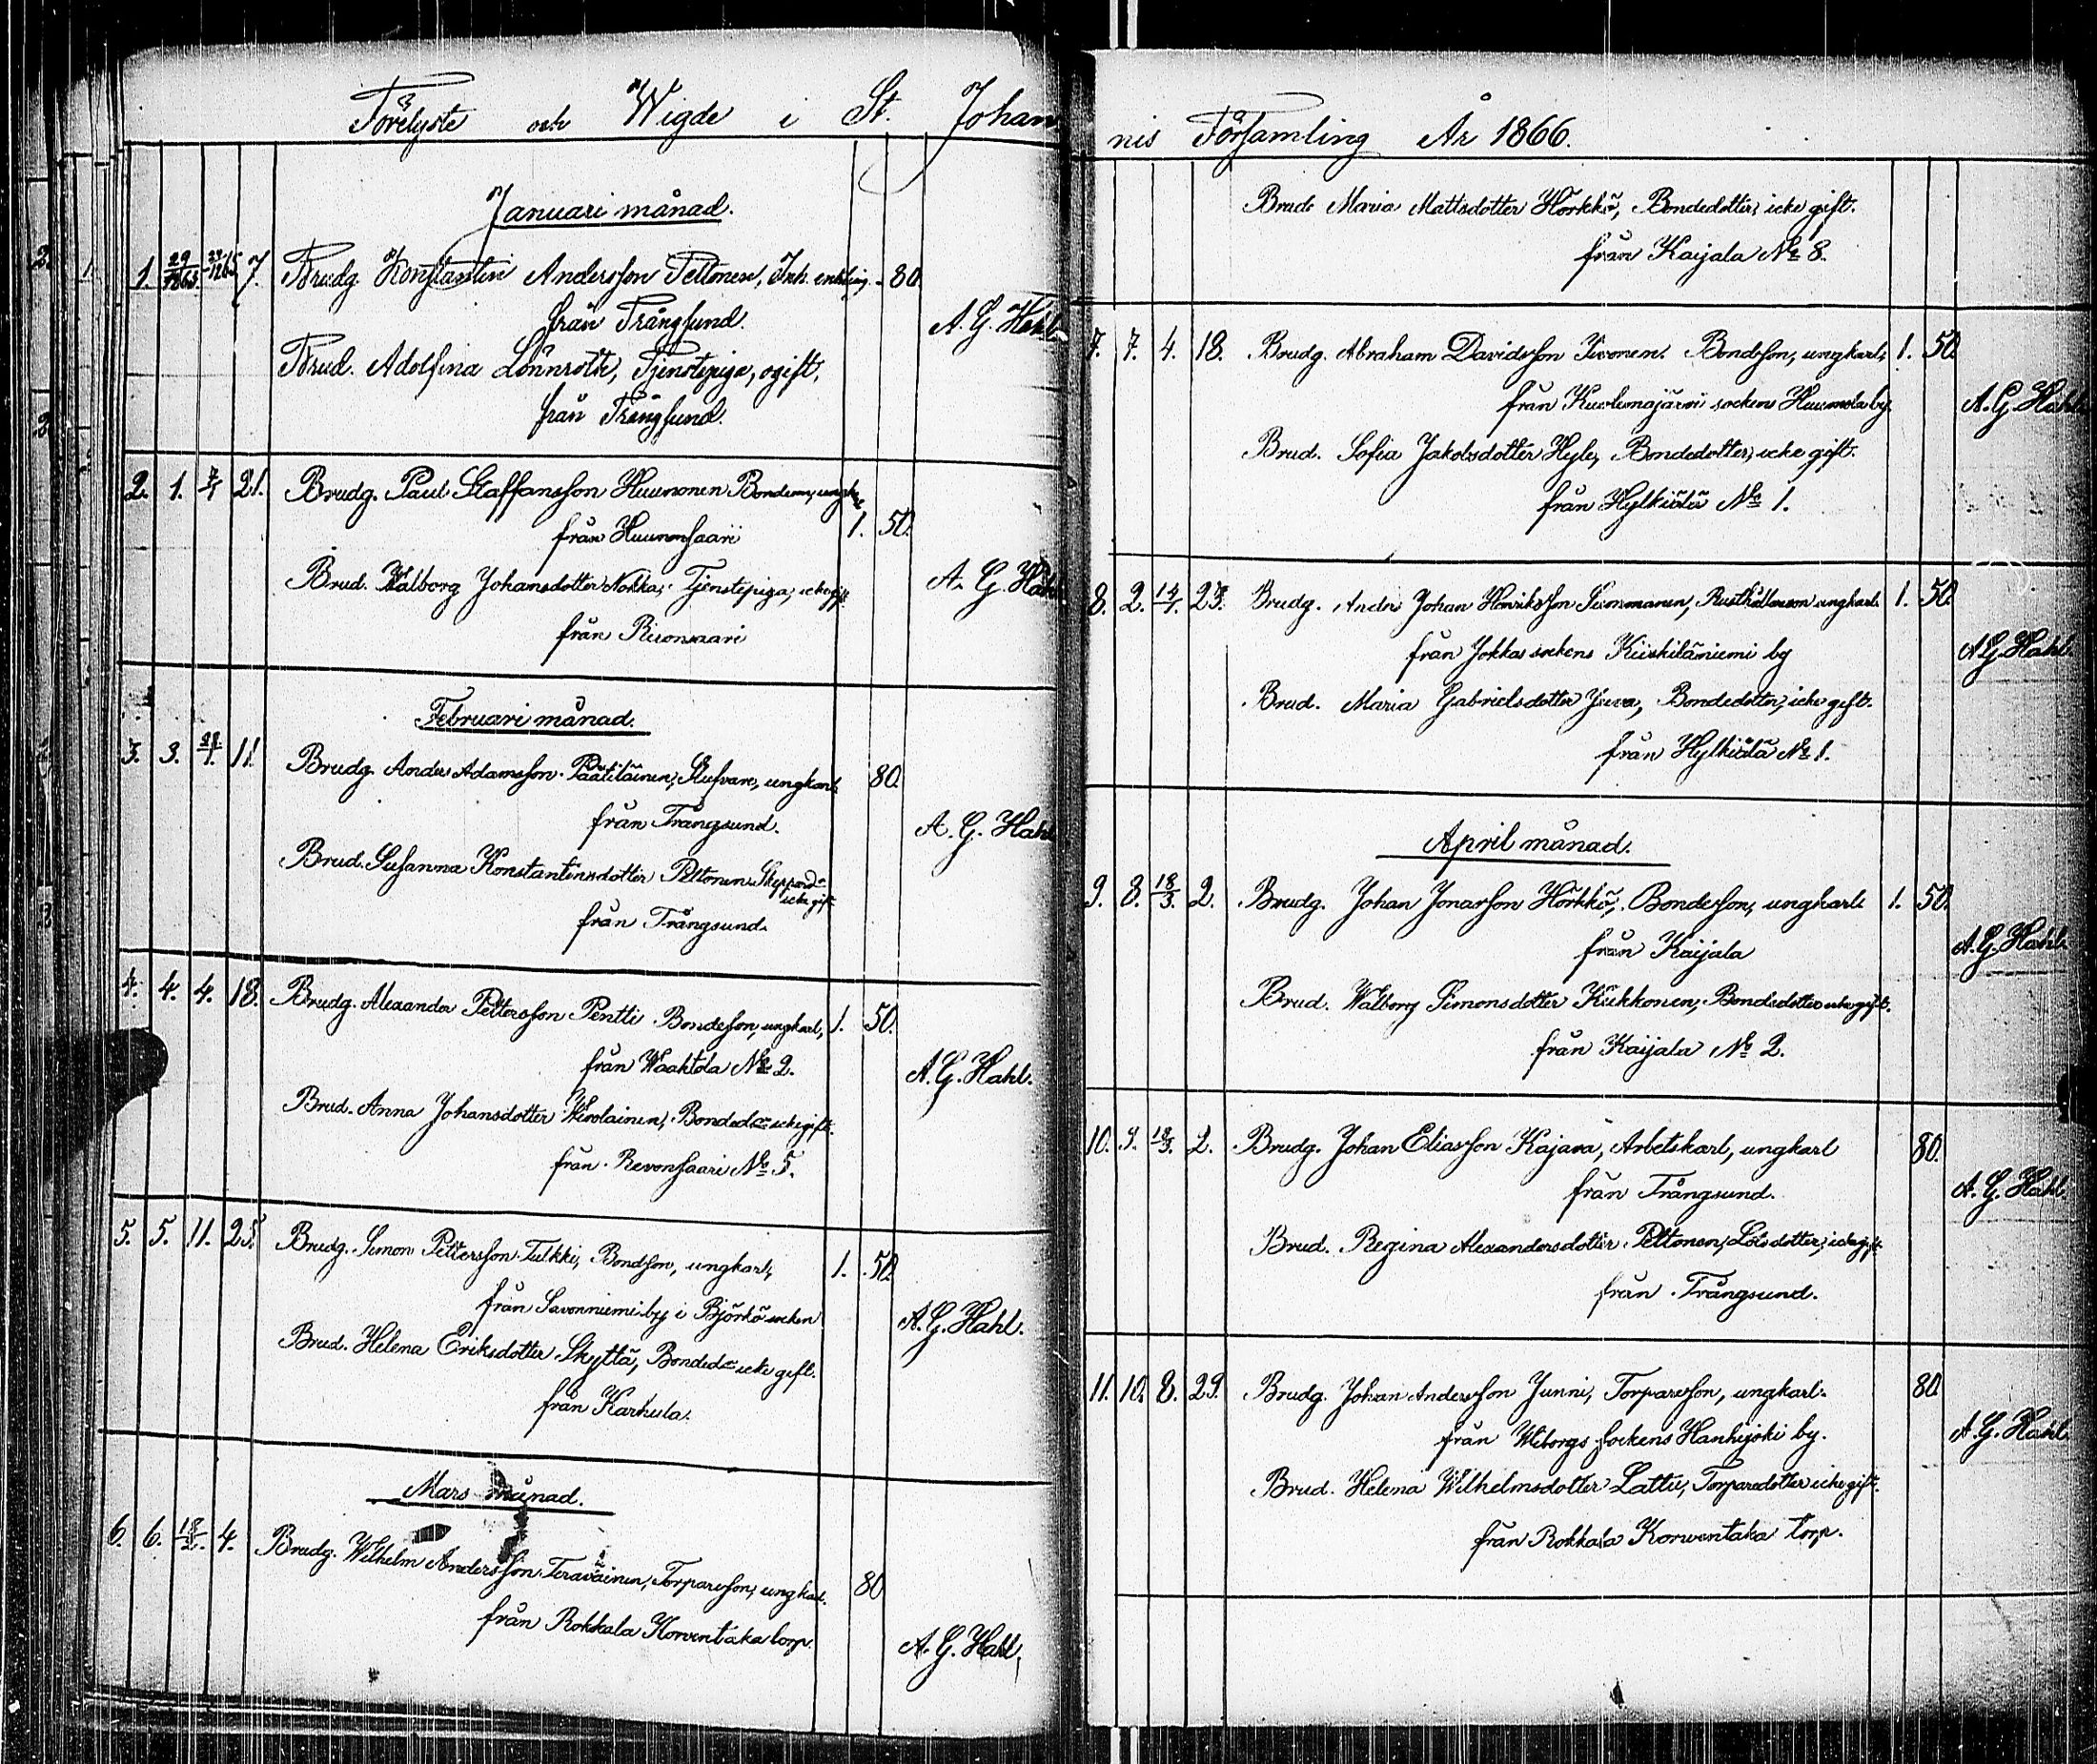 Förelyste och Wigde i St. Johan
Januari månad.
1. 29/1865. 7. Brudg. Konstantin Andersson Peltonen, Inh. enkling. - 80.
från Trångsund. A. G. Hahl
Brud. Adolfina Lönnroth, Tjenstepiga, ogift,
från Trångsund.
2. 1. 7/1 21. Brudg. Paul Staffansson Huunonen Bondeson, ungkarl
från Huunonsaari 1. 50.
Brud. Walborg Johansdotter Nokka, Tjenstepiga, icke gift A. G. Hahl
från Revonsaari
Februari månad.
3. 3. 28/1. 11. Brudg. Anders Adamsson Päätiläinen, Slufvare, ungkarl 80.
från Trångsund. A. G. Hahl
Brud. Susanna Konstantinsdotter Peltonen
icke gift
från Trångsund.
4. 4. 4. 18. Brudg. Alexander Pettersson Pentti Bondeson, ungkarl, 1. 50.
från Waahtola No 2. A. G. Hahl.
Brud. Anna Johansdotter Bonded:r icke gift.
från Revonsaari No 5.
5. 5. 11. 25. Brudg. Simon Pettersson Tulkki, Bondson, ungkarl, 1. 50.
från Savonniemi by i Björkö socken A. G. Hahl.
Brud. Helena Eriksdotter Skyttä, Bonded:r icke gift.
från Karhula.
Mars månad.
6. 6. 18/2. 4. Brudg. Wilhelm Andersson Teraväinen, Torpareson, ungkarl. 80
från Rokkala Korventaka torp. A. G. Hahl.
nis Församling År 1866.
Brud. Maria Mattsdotter Hörkkö, Bondedotter, icke gift.
från Kaijala No 8.
7. 7. 4. 18. Brudg. Abraham Davidsson Iivonen. Bondson, ungkarl, 1. 50.
från Kuolemajärvi socken Huumola by A. G. Hahl
Brud. Sofia Jakobsdotter Hyle, Bondedotter, icke gift.
från Hylkiälä No 1.
8. 2. 14/1. 23. Brudg. Anders Johan Henriksson Rusthållareson ungkarl. 1. 50.
från Jokkas sockens Kiiskiläniemi by A. G. Hahl.
Brud. Maria Gabrielsdotter Bondedotter, icke gift.
från Hylkiälä No 1.
April månad.
9. 8. 18/3. 2. Brudg. Johan Jonasson Hörkkö, Bondesson, ungkarl 1. 50.
från Kaijala A. G. Hahl.
Brud. Walborg Simonsdotter Kukkonen, Bondedotter icke gift.
från Kaijala No 2.
10. 9. 18/3. 2. Brudg. Johan Eliasson Kajava, Arbetskarl, ungkarl 80.
från Trångsund. A. G. Hahl
Brud. Regina Alexandersdotter Peltonen, Lotsdotter, icke gift
från Trångsund.
11. 10. 8. 29. Brudg. Johan Andersson Junni, Torpareson, ungkarl. 80.
från Wiborgs sockens Hanhijoki by. A. G. Hahl
Brud. Helena Wilhelmsdotter Lattu, Torparedotter icke gift.
från Rokkala Korwentaka torp.